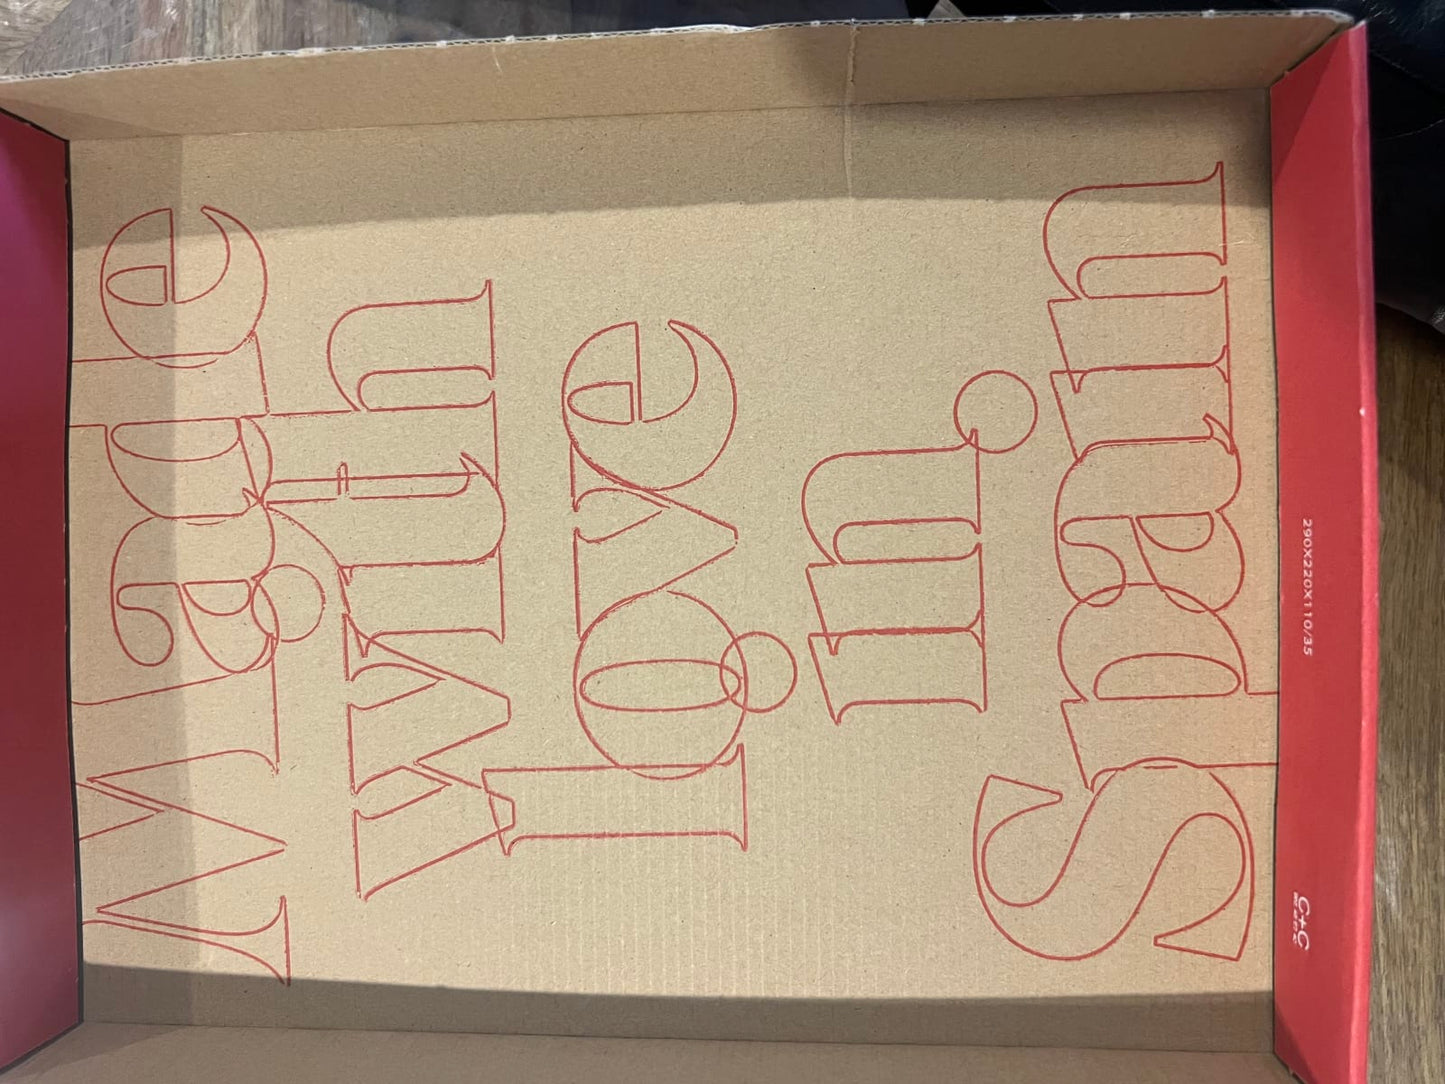 Made
with
love
in
Spain
290X220X110/35
C+C